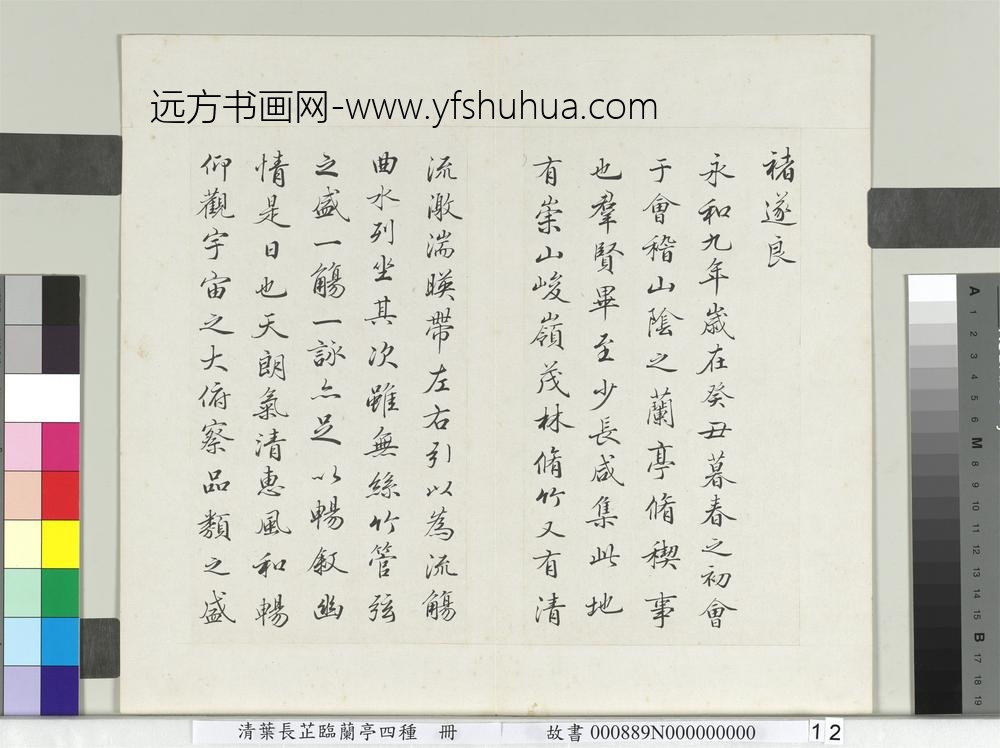 远方书画网-www.yfshuhua.com
褚遂良
永和九年歲在癸丑暮春之初會
于會稽山陰之蘭亭脩稧事
也羣賢畢至少長咸集此地
有崇山峻嶺茂林脩竹又有清
流激湍暎帶左右引以為流觴
曲水列坐其次雖無絲竹管弦
之盛一觴一詠亦足以暢叙幽
情是日也天朗氣清惠風和暢
仰觀宇宙之大俯察品類之盛
清葉長芷臨蘭亭四種 冊 故書 000889N000000000 12
A 1 2 3 4 5 6 M 8 9 10 11 12 13 14 15 B 17 18 19